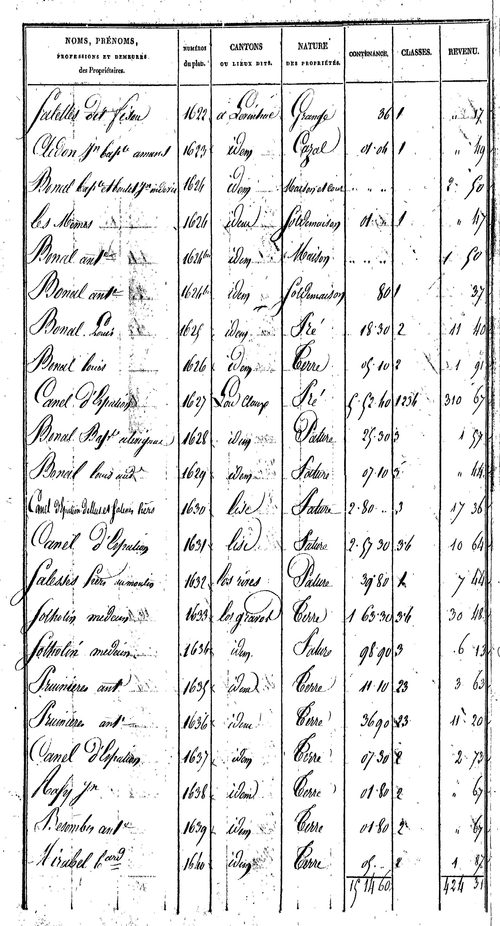 NOMS, PRÉNOMS, PROFESSIONS ET DEMEURES des Propriétaires. NUMÉROS du plan. CANTONS OU LIEUX DITS. NATURE DES PROPRIÉTÉS. CONTENANCE. CLASSES. REVENU.
1622 Grange 36 1 " 17
1623 idem Cazal 01.06 1 " 49
Bonal 1624 idem Maison et cour .. .. 2 50
les Memes 1624 idem Sol de maison 01 .. 1 " 47
Bonal ant.ne 1624bis idem Maison .. .. 1 50
Bonal ant.ne 1624bis idem Sol de maison 80 1 37
Bonal Louis 1625 idem Pré 18.30 2 11 40
Bonal louis 1626 idem Terre 05.10 2 1 91
Canel d'Espalion 1627 Lou Claux Pré 5.52.40 1234 310 67
Bonal Bap.te 1628 idem Pature 25.30 3 1 59
Bonal 1629 idem Pature 07.10 3 " 44
Canel d'Espalion 1630 lise Pature 2.80 .. 3 17 36
Canel d'Espalion 1631 lise Pature 2.57.30 34 10 64
1632 los rives Pature 39.80 7 44
medecin 1633 los gravos Terre 1 63.30 34 30 48
medecin 1634 idem Pature 98.90 3 6 13
Prunieres ant.e 1635 idem Terre 11.10 23 3 63
Prunieres ant.e 1636 idem Terre 36 90 23 11 20
Canel d'Espalion 1637 idem Terre 07.30 2 2 73
1638 idem Terre 01.80 2 " 67
Besombes ant.e 1639 idem Terre 01.80 2 " 67
Mirabel 1640 idem Terre 05 .. 2 1 87
15 14 60 424 31